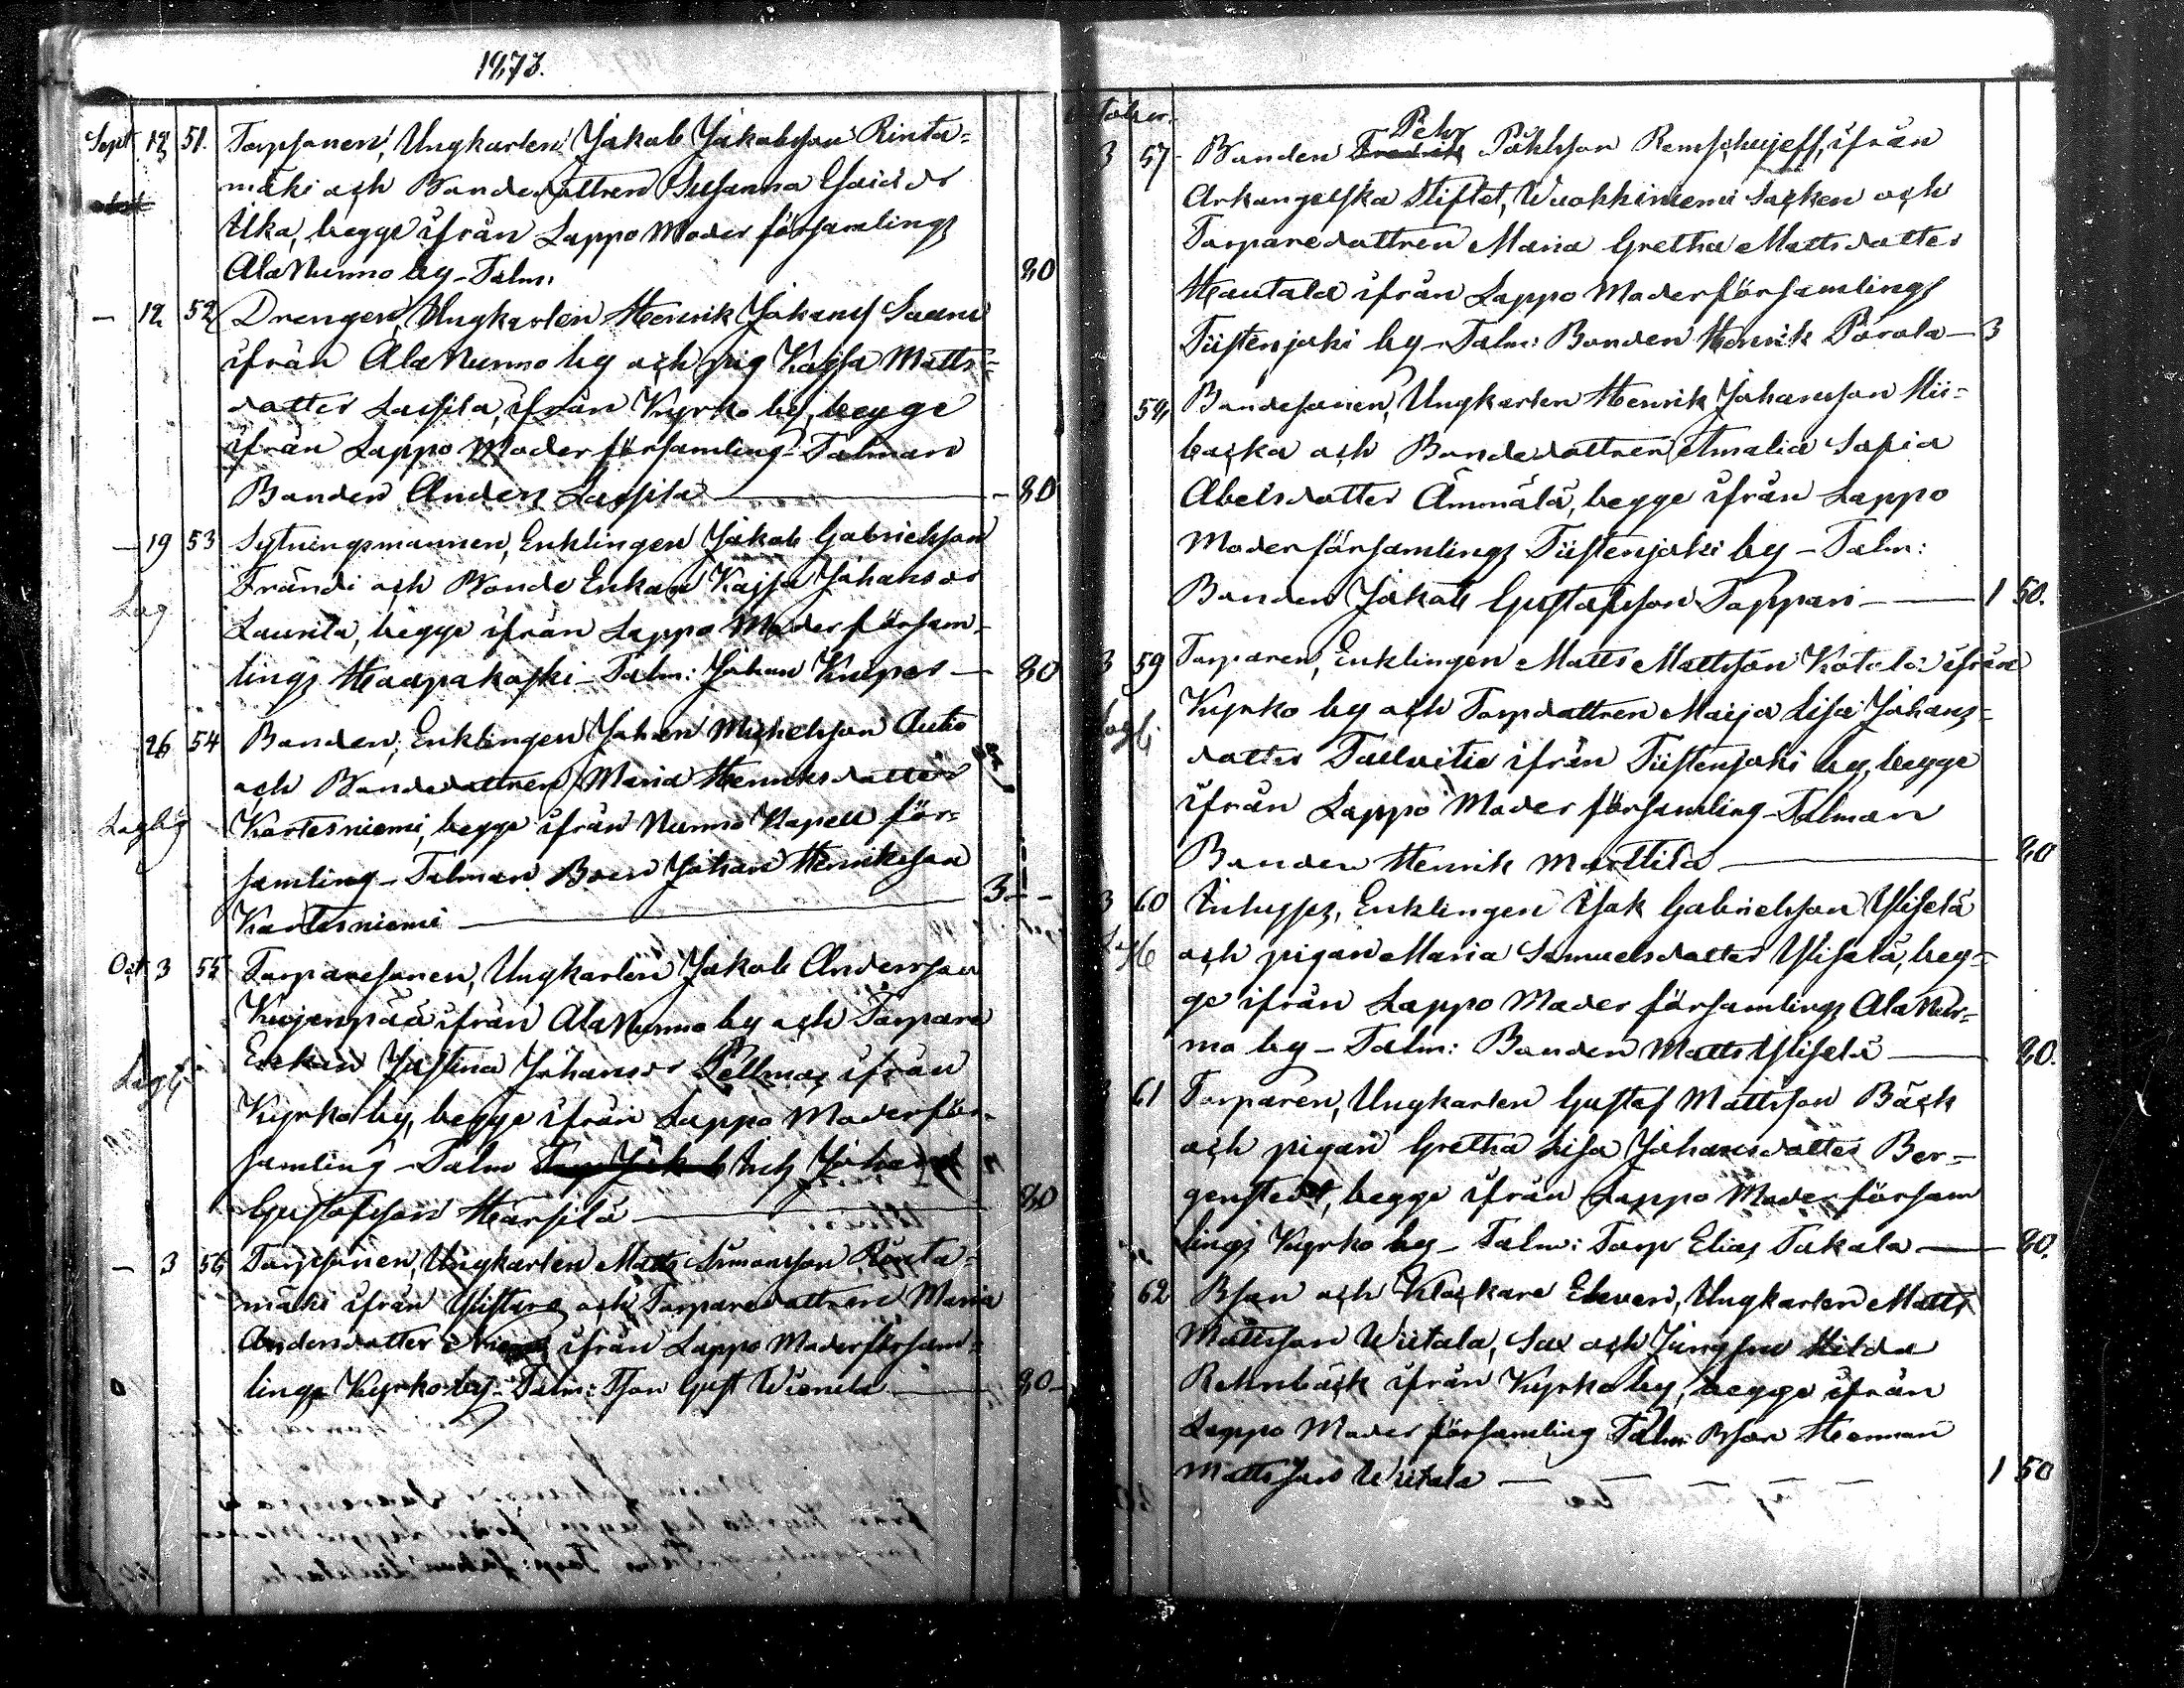 1873.
Sept. 12 51. Torpsonen, Ungkarlen Jakob Jakobsson Rinta-
mäki och Bondedottren Susanna Esaiædr
Uka, begge ifrån Lappo Moderförsamlings
Ala Nurmo by - Talm: 80
— 12 52 Drengen, Ungkarlen Henrik Johans Saari
ifrån Ala Nurmo by och pig Kajsa Matts-
dotter Lassila, ifrån Kyrko by, begge
ifrån Lappo Moderförsamling - Talman
Bonden Anders Lassila — 80
— 19 53 Sytningsmannen, Enklingen Jakob Gabrielsson
Frändi och Bonde Enkan Kajsa Johansdr
Lag
Laurila, begge ifrån Lappo Moderförsam-
lings Haapakoski - Talm: Johan Knuper — 80
26 54 Bonden, Enklingen Johan Michelsson Autio
och Bondedottren Maria Henriksdotter
Laglig Kortesniemi, begge ifrån Nurmo Kapell för-
samling - Talman Bon Johan Henriksson
Kortesniemi — 3 —
Oct. 3 55 Torparesonen, Ungkarlen Jakob Andersson
Kujenpää ifrån Ala Nurmo by och Torpare
Enkan Justina Johansdr Pellmas ifrån
Lagl:
Kyrko by, begge ifrån Lappo Moderför-
samling - Talm Inh Johan
Gustafsson Harsila — 80
— 3 56 Torpsonen, Ungkarlen Matts Simonsson Ranta-
mäki ifrån Ylistaro och Torparedottren Maria
Andersdotter ifrån Lappo Moderförsam-
lings Kyrko by - Talm: Tson Gust Wiemela — 80 -
October.
3 57 Bonden Pehr Påhlsson Remschujeff, ifrån
Arkangelska Stiftet, Wuokkiniemi Socken och
Torparedottren Maria Gretha Mattsdotter
Hautala ifrån Lappo Moderförsamlings
Tiistenjoki by - Talm: Bonden Henrik Porola — 3
58 Bondesonen, Ungkarlen Henrik Johansson Hii-
backa och Bondedottren Amalia Sofia
Abelsdotter Ämmälä, begge ifrån Lappo
Moderförsamlings Tiistenjoki by - Talm:
Bonden Jakob Gustafsson Pappari — 1 50.
3 59 Torparen, Enklingen Matts Mattsson Kotola ifrån
Kyrko by och Torpdottren Maija Lisa Johans-
Lagl:
dotter Tallvitie ifrån Tiistenjoki by, begge
ifrån Lappo Moderförsamling - Talman
Bonden Henrik Marttila — 80
3 60 Inhyses, Enklingen Isak Gabrielsson Yliselä
och pigan Maria Samuelsdotter Ylisalä, beg-
ge ifrån Lappo Moderförsamlings Ala Nur-
mo by - Talm: Bonden Matts Ylisalä — 80.
61 Torparen, Ungkarlen Gustaf Mattsson Bäck
och pigan Gretha Lisa Johansdotter Ber-
genstedt, begge ifrån Lappo Moderförsam
lings Kyrko by - Talm: Torp Elias Takala — 80.
62 Bson och Klockare Eleven, Ungkarlen Matts
Mattsson Wiitala, Sax och Jungfru Hilda
Rehnbäck ifrån Kyrko by, begge ifrån
Lappo Moderförsamling Talm: Bson Herman
Mattsson Wiitala — 1 50